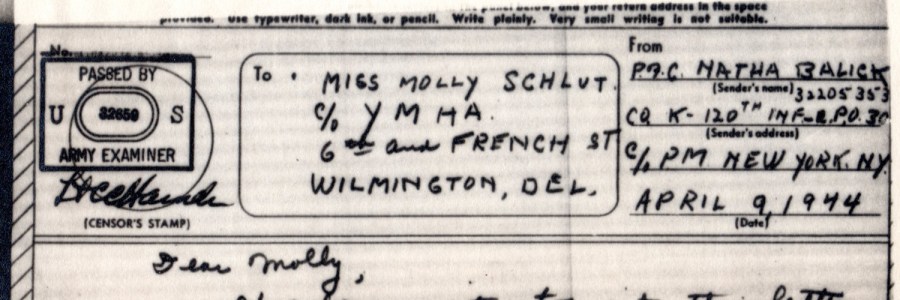 panel below, and your return address in the space
provided. Use typewriter, dark ink, or pencil. Write plainly. Very small writing is not suitable.
No.
PASSED BY
U 32650 S
ARMY EXAMINER
(CENSOR'S STAMP)
To
MISS MOLLY SCHLUT.
C/o Y M H A.
6th and FRENCH ST
WILMINGTON, DEL.
From
P.F.C. NATHA BALICK
(Sender's name) 32205353
CO K - 120TH INF - A.P.O. 30
(Sender's address)
C/o PM NEW YORK. NY.
APRIL 9, 1944
(Date)
Dear Molly,